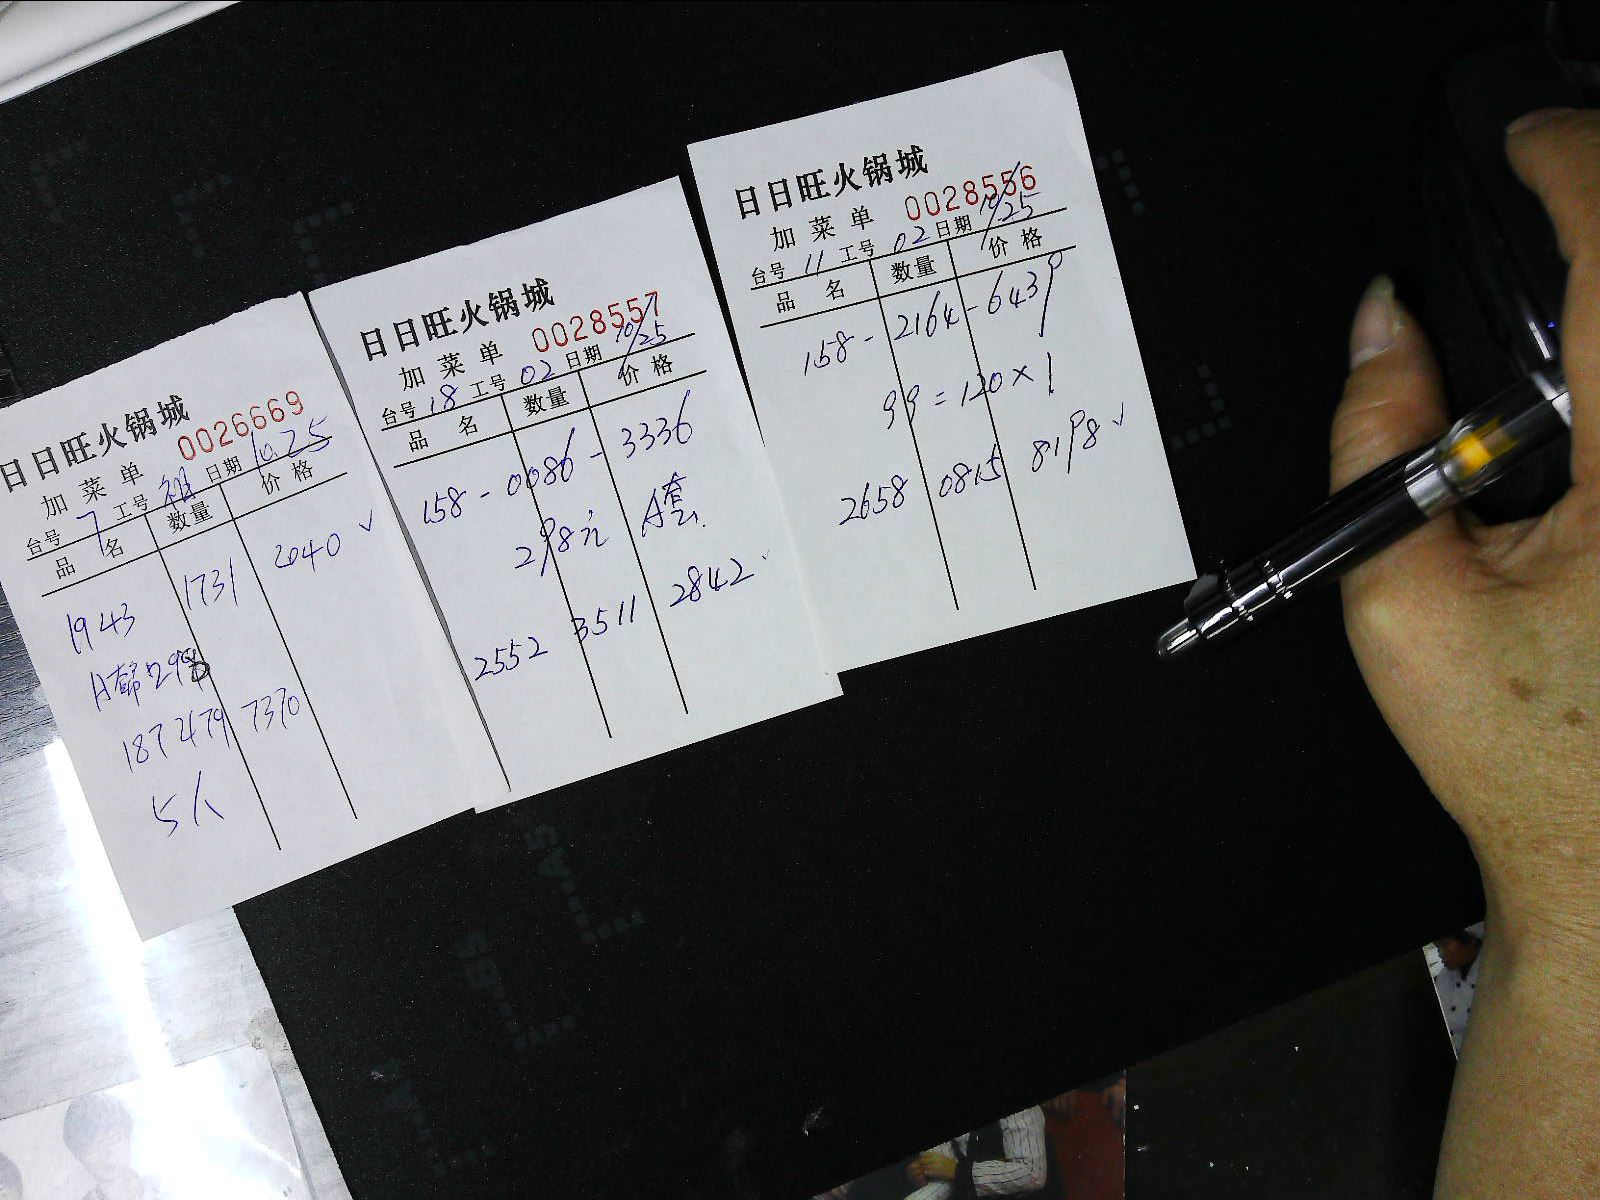 日日旺火锅城
加菜单 0026669
台号 7 工号 祖 日期 10.25
品名 数量 价格
1943 1731 2040 ✓
A套 298
187 2179 7370
5人
日日旺火锅城
加菜单 0028557
台号 18 工号 02 日期 10/25
品名 数量 价格
158-0086-3336
298元 A套.
2552 3511 2842 ✓
日日旺火锅城
加菜单 0028556
台号 11 工号 02 日期 10/25
品名 数量 价格
158-2164-6439
99=120×1
2658 0815 8198 ✓